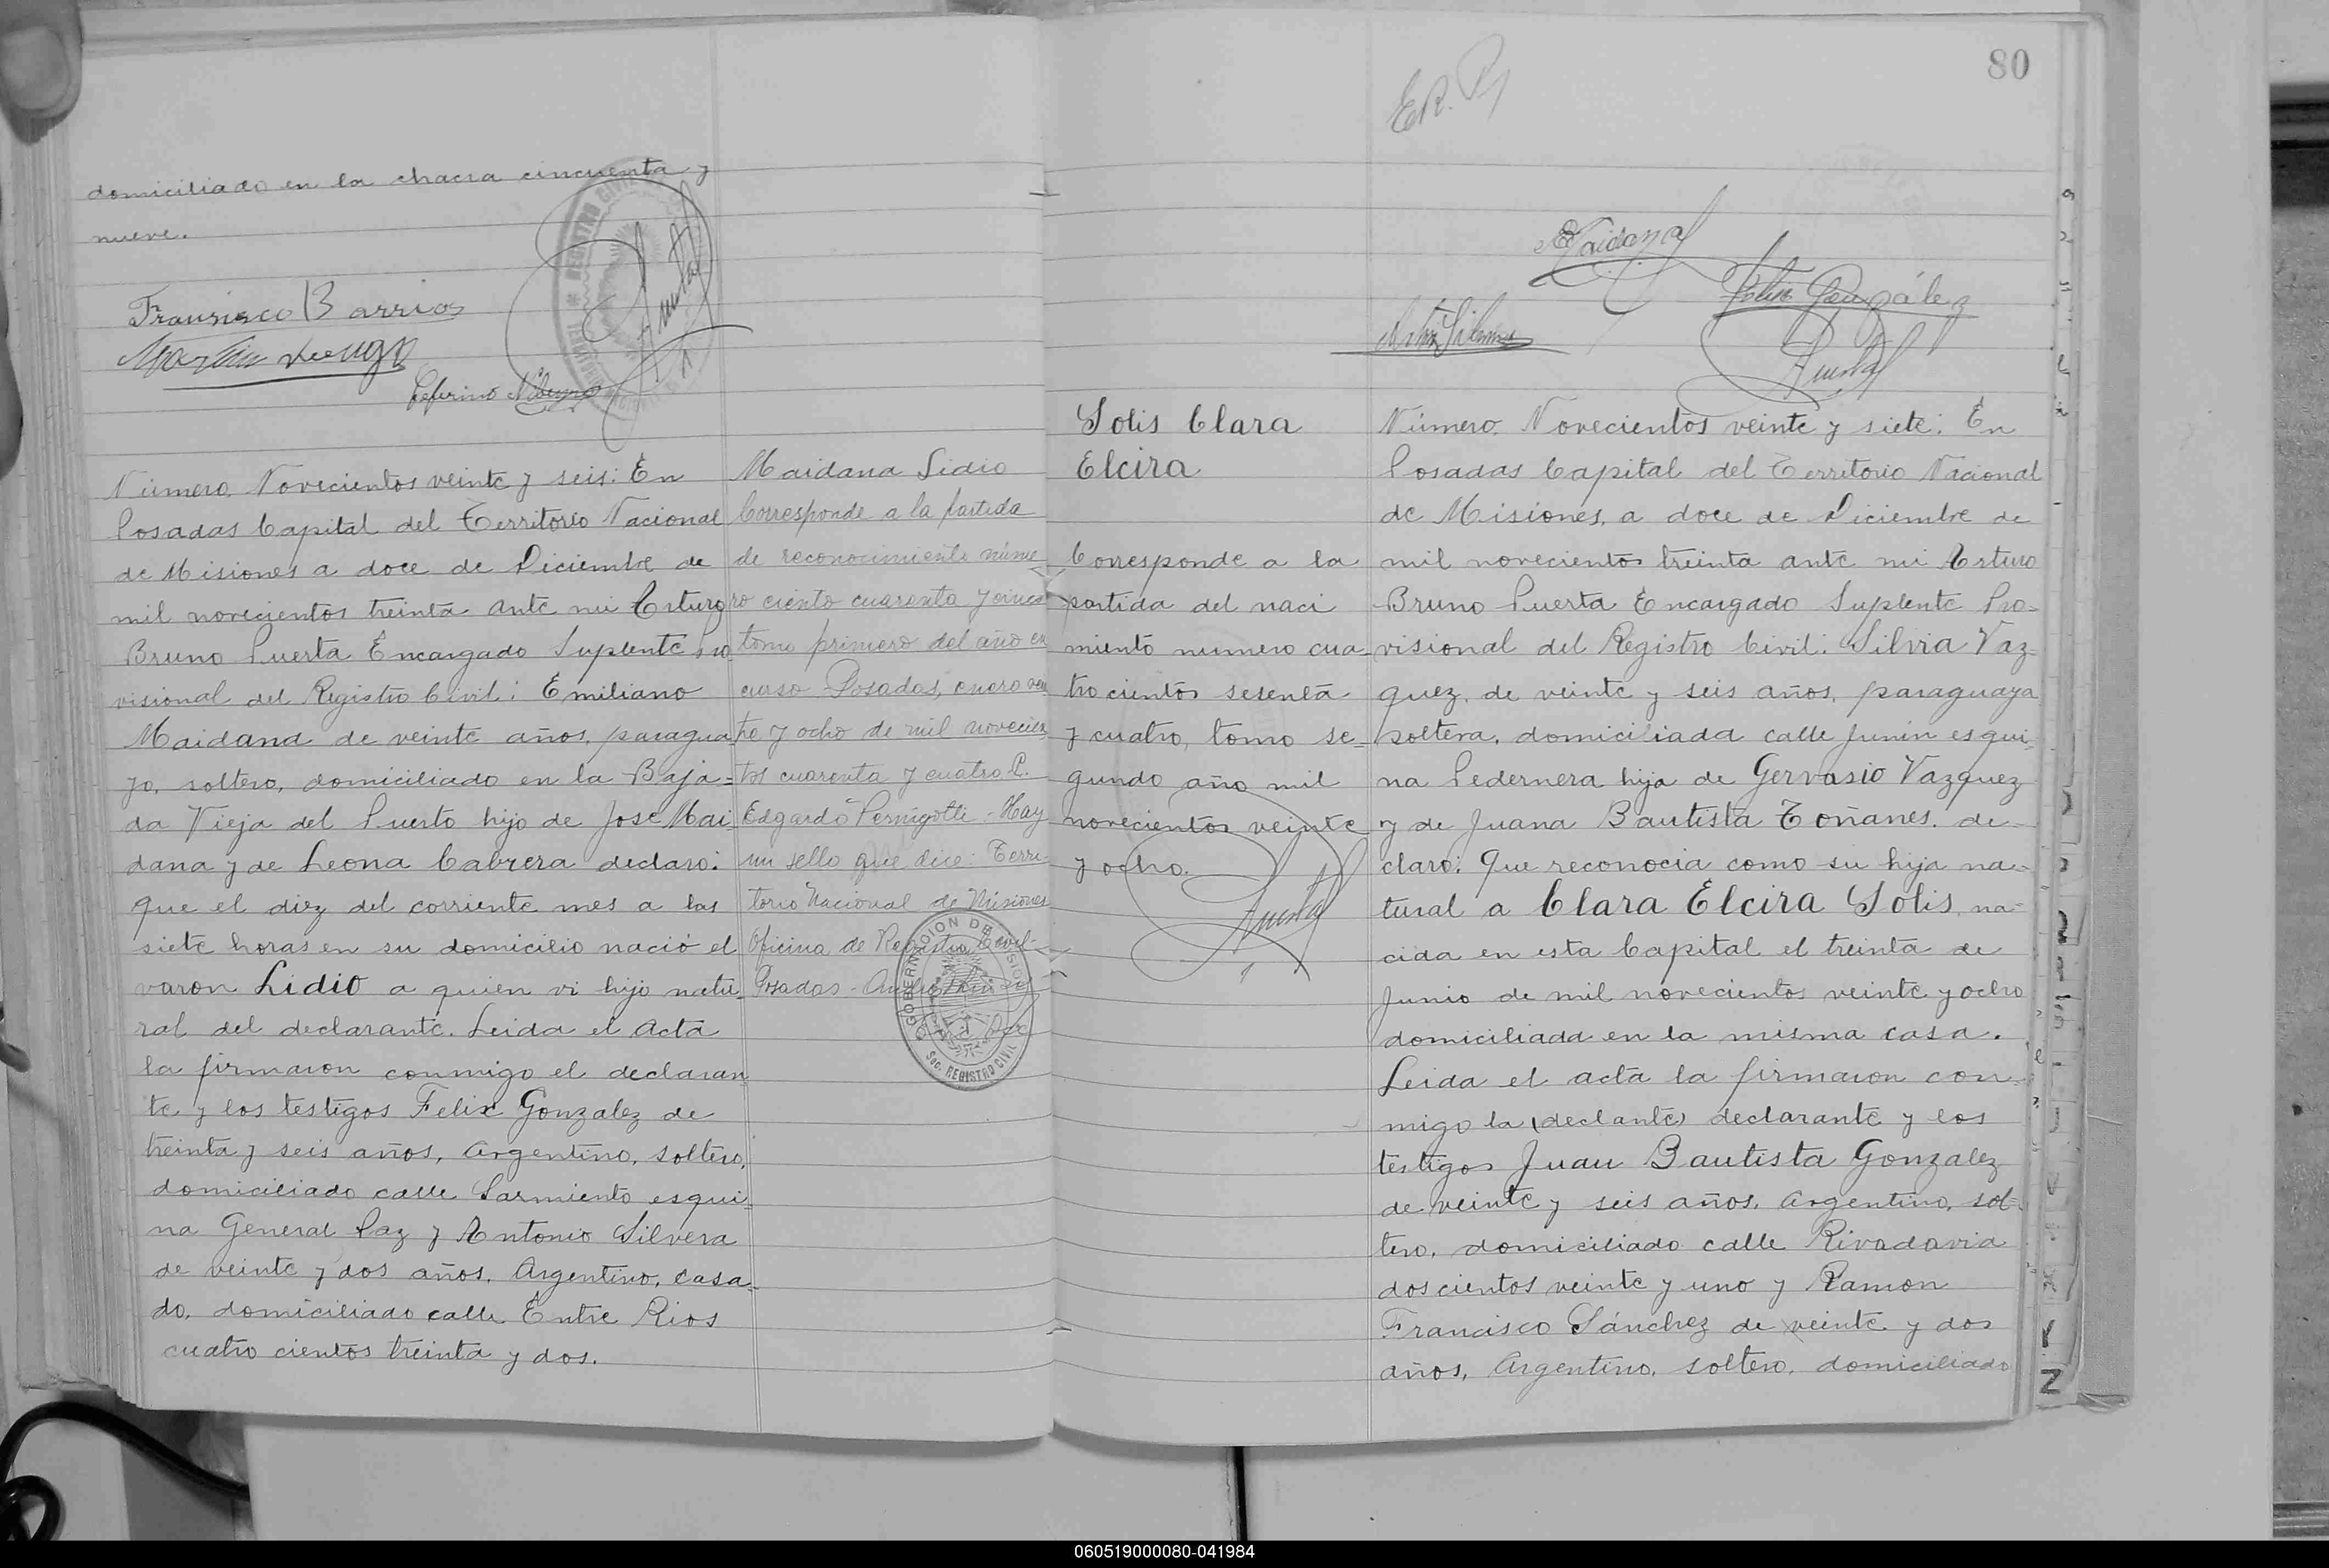 domiciliado en la chacra cincuenta y
nueve.
Francisco Barrios
Martin
Ceferino
Número Novecientos veinte y seis: En
Posadas Capital del Territorio Nacional
de Misiones a doce de Diciembre de
mil novecientos treinta ante mi Arturo
Bruno Puerta Encargado Suplente Pro
visional del Registro Civil: Emiliano
Maidana de veinte años, paragua
yo, soltero, domiciliado en la Baja-
da Vieja del Puerto hijo de José Mai
dana y de Leona Cabrera declaró:
Que el diez del corriente mes a las
siete horas en su domicilio nació el
varon Lidio a quien vi hijo natu
ral del declarante. Leida el Acta
la firmaron conmigo el declaran
te y los testigos Felix Gonzalez de
treinta y seis años, Argentino, soltero,
domiciliado calle Sarmiento esqui-
na General Paz y Antonio Silvera
de veinte y dos años, Argentino, casa-
do, domiciliado calle Entre Rios
cuatro cientos treinta y dos.
Maidana Lidio
Corresponde a la partida
de reconocimiento núme
ro ciento cuarenta y cinco
tomo primero del año en
curso Posadas, enero vein
te y ocho de mil novecien
tos cuarenta y cuatro P.
Edgardo Pernigotti - Hay
un sello que dice: Terri
torio Nacional de Misiones
Oficina de Registro Civil -
Posadas -
GOBERNACION DE MISIONES
SOC. REGISTRO CIVIL
80
E.R.P.
E Maidana
Felix González
Antº Silvera
Puerta
Solis Clara
Elcira
Corresponde a la
partida del naci
miento numero cua-
tro cientos sesenta
y cuatro, tomo se-
gundo año mil
novecientos veinte
y ocho.
Puerta
Número Novecientos veinte y siete: En
Posadas Capital del Territorio Nacional
de Misiones, a doce de Diciembre de
mil novecientos treinta ante mi Arturo
Bruno Puerta Encargado Suplente Pro-
visional del Registro Civil: Silvia Vaz-
quez, de veinte y seis años, paraguaya
soltera, domiciliada calle Junin esqui-
na Pedernera hija de Gervasio Vazquez
y de Juana Bautista Toñanes. de-
claró: Que reconocia como su hija na-
tural a Clara Elcira Solis na-
cida en esta Capital el treinta de
Junio de mil novecientos veinte y ocho
domiciliada en la misma casa.
Leida el acta la firmaron con-
migo la (declante) declarante y los
testigos Juan Bautista Gonzalez
de veinte y seis años, Argentino, sol-
tero, domiciliado calle Rivadavia
doscientos veinte y uno y Ramon
Francisco Sánchez de veinte y dos
años, Argentino, soltero, domiciliado
060519000080-041984